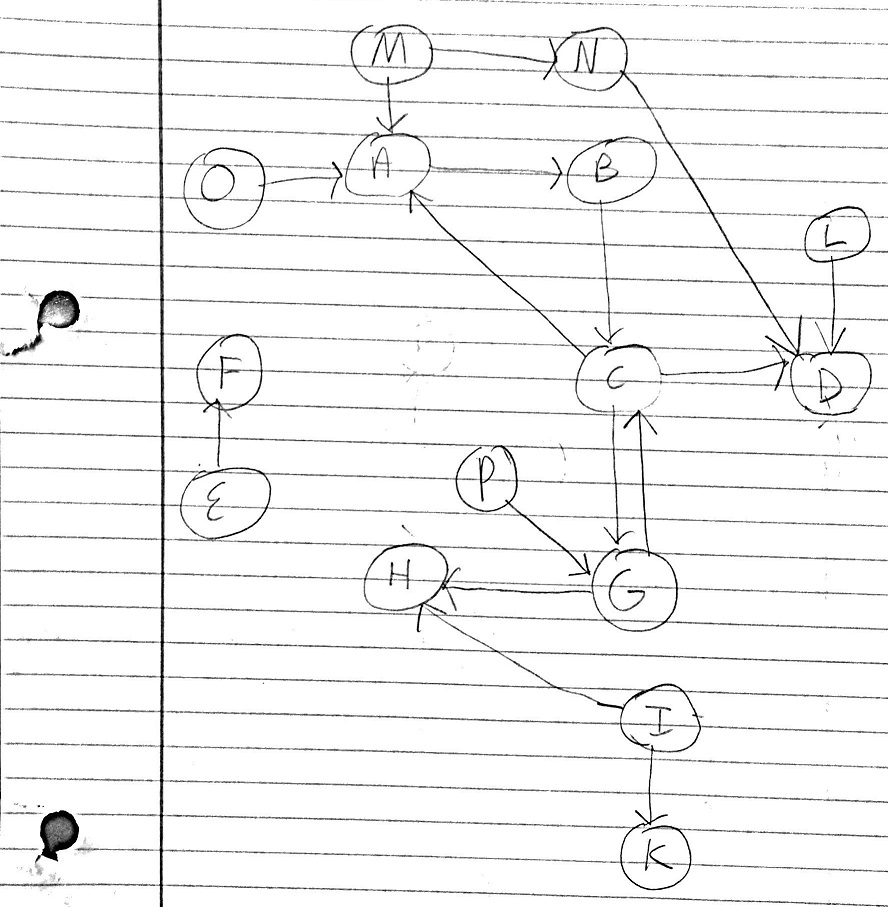 M N
O A B
L
F C D
P
E
H G
I
K